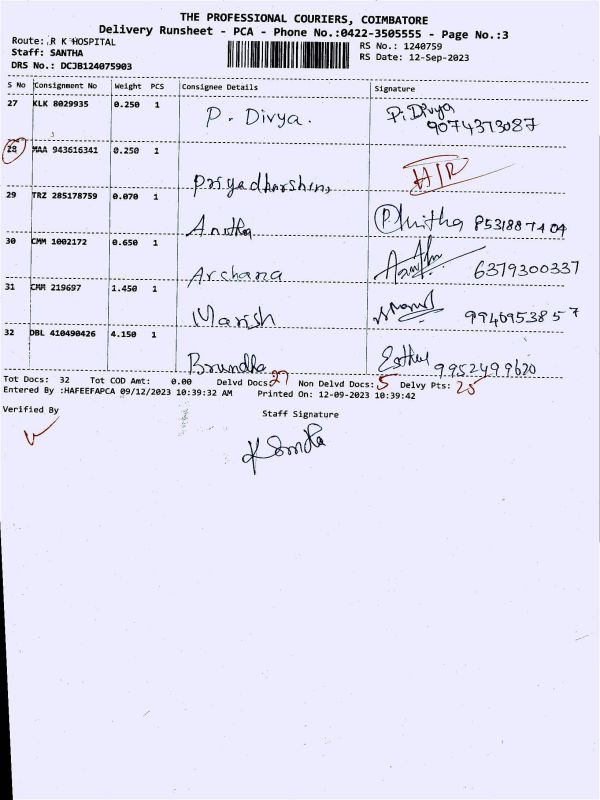 THE PROFESSIONAL COURIERS, COIMBATORE
Delivery Runsheet - PCA - Phone No.:0422-3505555 - Page No.:3
Route: R K HOSPITAL
RS No.: 1240759
Staff: SANTHA
RS Date: 12-Sep-2023
DRS No.: DCJB124075903
S No Consignment No Weight PCS Consignee Details Signature
27 KLK 8029935 0.250 1 P. Divya. P. Divya
9074373087
28 MAA 943616341 0.250 1 Priyadharshini
29 TRZ 285178759 0.070 1 Anitha 8531887404
30 CMM 1002172 0.650 1 Archana 6379300337
31 CMM 219697 1.450 1 Manish 9946953857
32 DBL 410490426 4.150 1 Brundha Esther 9952499620
Tot Docs: 32 Tot COD Amt: 0.00 Delvd Docs: 27 Non Delvd Docs: 5 Delvy Pts: 25
Entered By :HAFEEFAPCA 09/12/2023 10:39:32 AM Printed On: 12-09-2023 10:39:42
Verified By
Staff Signature